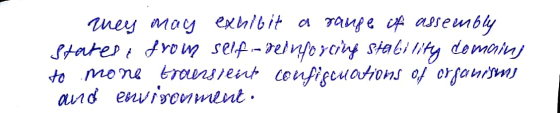 They may exhibit a range of assembly
states, from self-reinforcing stability domains
to more transient configurations of organisms
and environment.